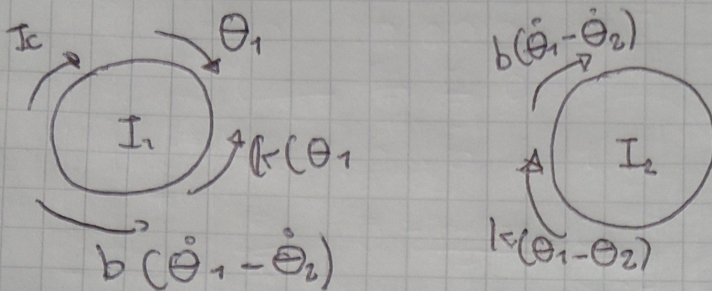 Tc
θ1
I1
k(θ1
b(θ̇1-θ̇2)
b(θ̇1-θ̇2)
I2
k(θ1-θ2)